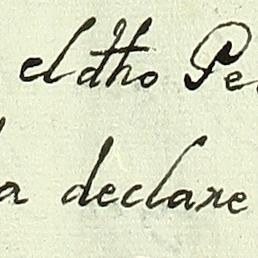 el dho Pe
a declare